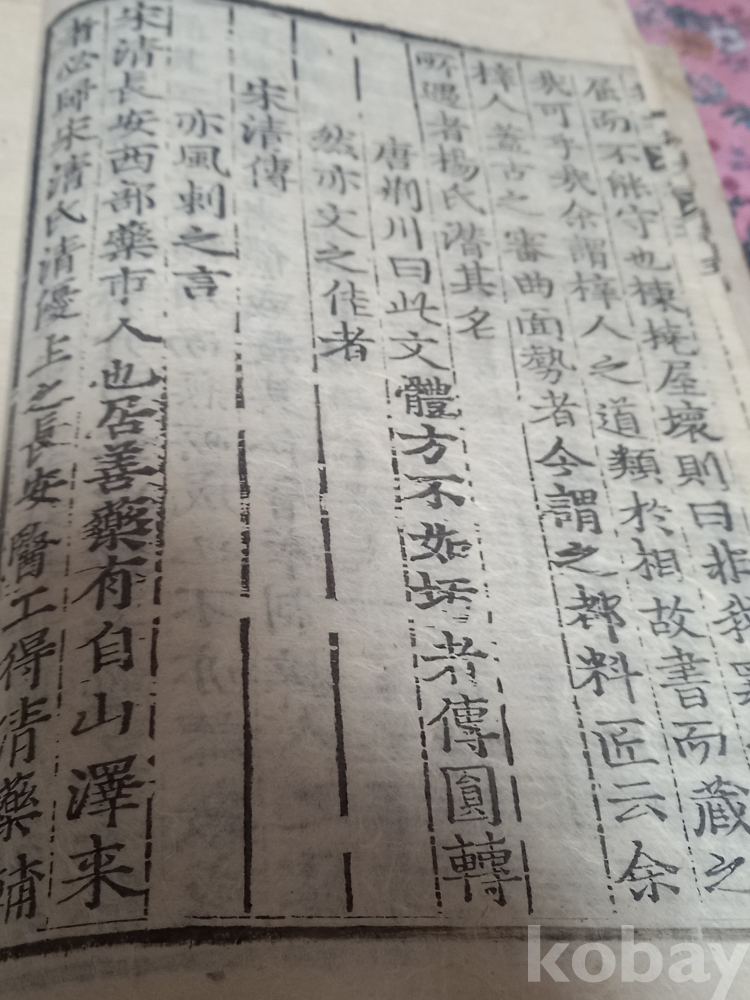 屈而不能守也棟撓屋壞則曰非我罪
我可乎哉余謂梓人之道類於相故書而藏之
梓人蓋古之審曲面勢者今謂之都料匠云余
所遇者楊氏潛其名
唐荊川曰此文體方不如圬者傳圓轉
然亦文之佳者
宋清傳
亦風刺之言
宋清長安西部藥市人也居善藥有自山澤来
者必歸宋清氏清優主之長安醫工得清藥輔
kobay